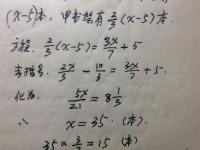 (x-5)本, 甲书架有 2/3 (x-5) 本.
方程: 2/3 (x-5) = 3x/7 + 5
去括号. 2x/3 - 10/3 = 3x/7 + 5.
化为. 5x/21 = 8 1/3
∴ x = 35. (本).
35 × 3/7 = 15 (本)